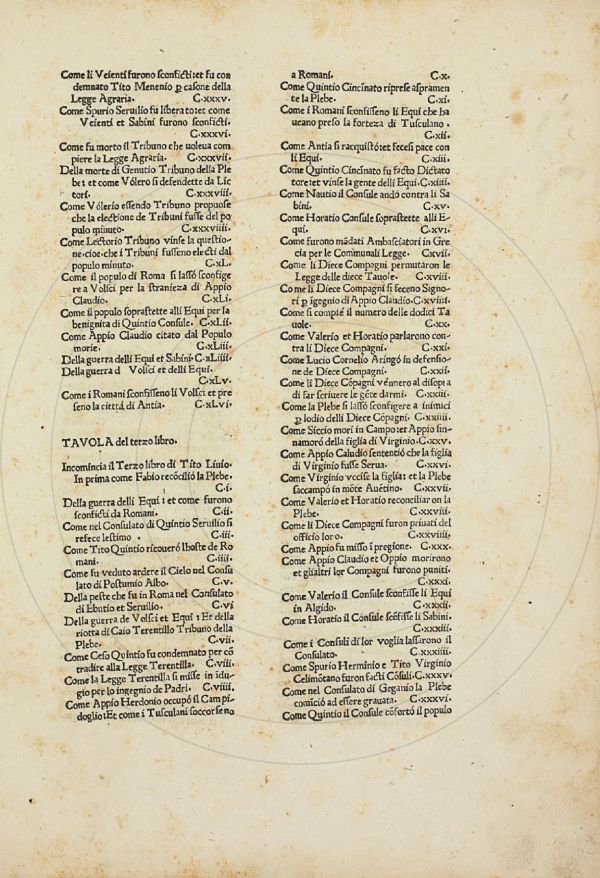 Come li Veienti furono sconficti: et fu con
demnato Tito Menenio ꝑ casone della
Legge Agraria. C·xxxv·
Come Spurio Seruilio fu liberato: et come
Veienti et Sabini furono sconficti.
C·xxxvi·
Come fu morto il Tribuno che uoleua com
piere la Legge Agraria. C·xxxvii·
Della morte di Genutio Tribuno della Ple
be: et come Völero si defendette da Lic
tori. C·xxxviii·
Come Völerio essendo Tribuno propuose
che la electione de Tribuni fusse del po
pulo minuto. C·xxxviiii·
Come Lectorio Tribuno vinse la questio-
ne·cioe·che i Tribuni fusseno electi dal
populo minuto. C·xL·
Come il populo di Roma si lassò sconfige
re a Volsci per la stranieza di Appio
Claudio. C·xLi·
Come il populo soprastette alli Equi per la
benignita di Quintio Consule. C·xLii·
Come Appio Claudio citato dal Populo
morie. C·xLiii·
Della guerra delli Equi et Sabini·C·xLiiii·
Della guerra d Volsci et delli Equi.
C·xLv·
Come i Romani sconfisseno li Volsci et pre
seno la cittá di Antia. C·xLvi·
TAVOLA del terzo libro.
Incomincia il Terzo libro di Tito Liuio.
In prima come Fabio recōciliò la Plebe.
C·i·
Della guerra delli Equi: et come furono
sconficti da Romani. C·ii·
Come nel Consulato di Quintio Seruilio si
refece lestimo. C·iii·
Come Tito Quintio ricouerò lhoste de Ro
mani. C·iiii·
Come fu veduto ardere il Cielo nel Consu
lato di Postumio Albo. C·v·
Della peste che fu in Roma nel Consulato
di Ebutio et Seruilio. C·vi
Della guerra de Volsci et Equi: Et della
riotta di Caio Terentillo Tribuno della
Plebe. C·vii·
Come Ceso Quintio fu condemnato per cō
tradire alla Legge Terentilla. C·viii·
Come la Legge Terentilla si misse in indu-
gio per lo ingegno de Padri. C·viiii·
Come Appio Herdonio occupó il Campi-
doglio: Et come i Tusculani soccorseno
a Romani. C·x·
Come Quintio Cincinato riprese aspramen
te la Plebe. C·xi·
Come i Romani sconfisseno li Equi che ha
ueano preso la forteza di Tusculano.
C·xii·
Come Antia si racquistó: et fecesi pace con
li Equi. C·xiii·
Come Quintio Cincinato fu facto Dictato
tore: et vinse la gente delli Equi·C·xiiii·
Come Nautio il Consule andó contra li Sa
bini. C·xv·
Come Horatio Consule soprastette alli E-
qui. C·xvi·
Come furono mādati Ambasciatori in Gre
cia per le Communali Legge. C·xvii·
Come li Diece Compagni permutaron le
Legge delle diece Tauole. C·xviii·
Come li Diece Compagni si feceno Signo-
ri ꝑ igegnio di Appio Claudio·C·xviiii·
Come si compié il numero delle dodici Ta
uole. C·xx·
Come Valerio et Horatio parlarono con-
tra li Diece Compagni. C·xxi·
Come Lucio Cornelio Aringó fu defensio-
ne de Diece Compagni. C·xxii·
Come li Diece Cōpagni vennero al disopra
di far scriuere le gēte darmi. C·xxiii·
Come la Plebe si lassó sconfigere a inimici
ꝑ lodio delli Diece Cōpagni. C·xxiiii·
Come Siccio mori in Campo: et Appio sin-
namoró della figlia di Virginio·C·xxv·
Come Appio Caludio sententió che la figlia
di Virginio fusse Serua. C·xxvi·
Come Virginio vccise la figlia: et la Plebe
saccampó in mōte Auētino. C·xxvii·
Come Valerio et Horatio reconciliaron la
Plebe. C·xxviii·
Come li Diece Compagni furon priuati del
officio loro. C·xxviiii·
Come Appio fu misso i pregione. C·xxx·
Come Appio Claudio et Oppio morirono
et glialtri lor Compagni furono puniti.
C·xxxi·
Come Valerio il Consule sconfisse li Equi
in Algido. C·xxxii·
Come Horatio il Consule scōfisse li Sabini.
C·xxxiii·
Come i Consuli di lor voglia lassarono il
Consulato. C·xxxiiii·
Come Spurio Herminio e Tito Virginio
Celimōtano furon facti Cōsuli·C·xxxv·
Come nel Consulato di Geganio la Plebe
comīció ad essere grauata. C·xxxvi·
Come Quintio il Consule cōfortó il populo